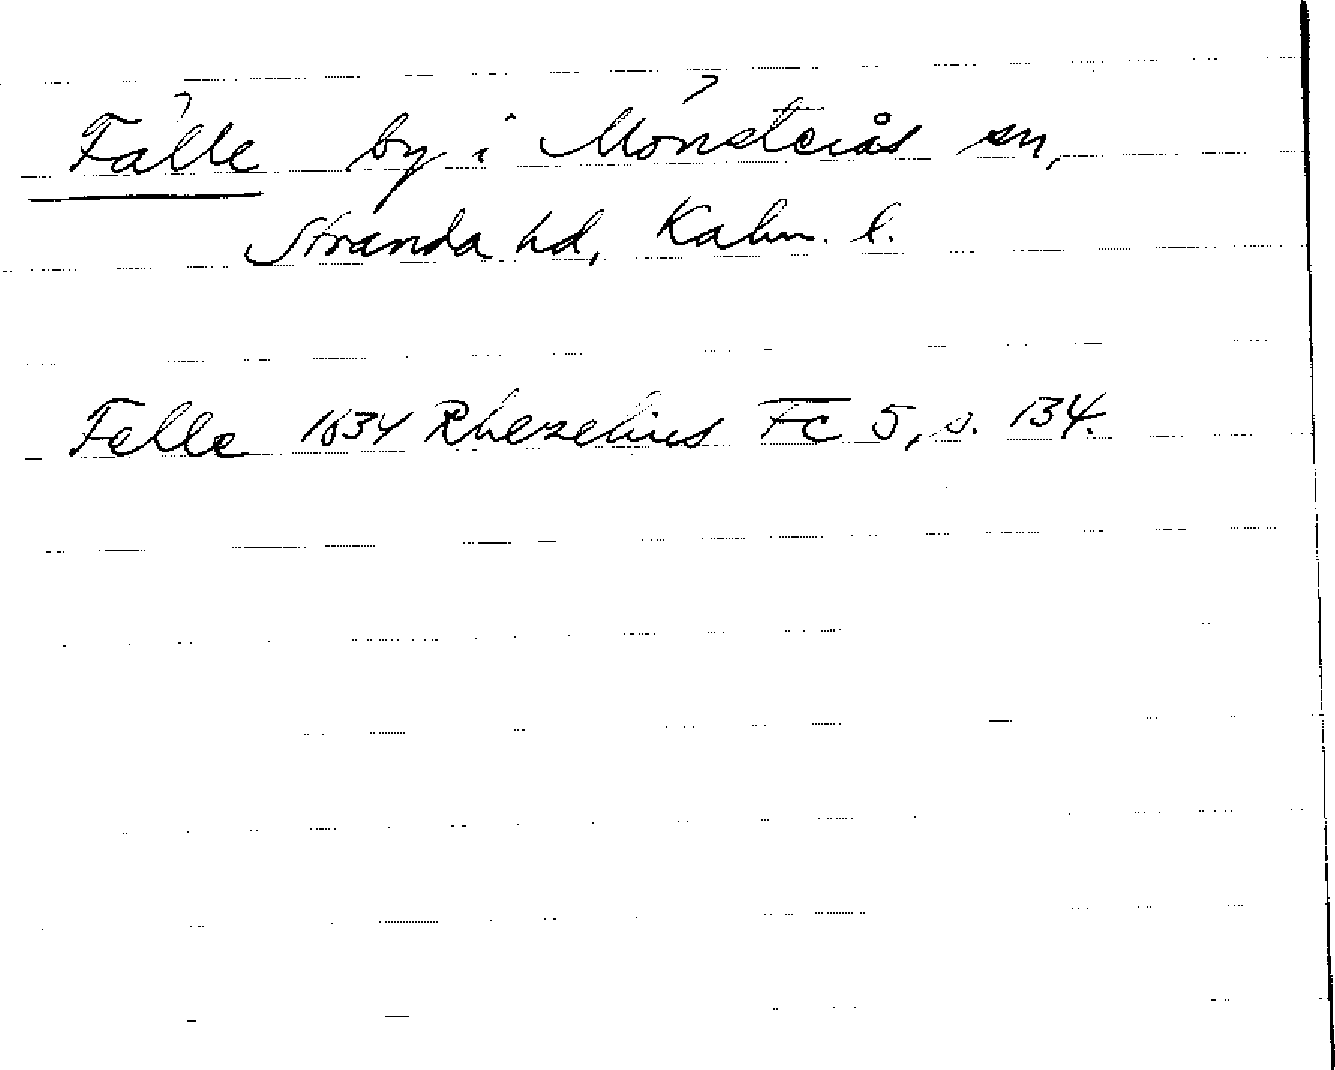 Fälle by i Mönsterås sn,
Stranda hd, Kalm. l.
Felle 1634 Rhezelius Fc 5, s. 134.